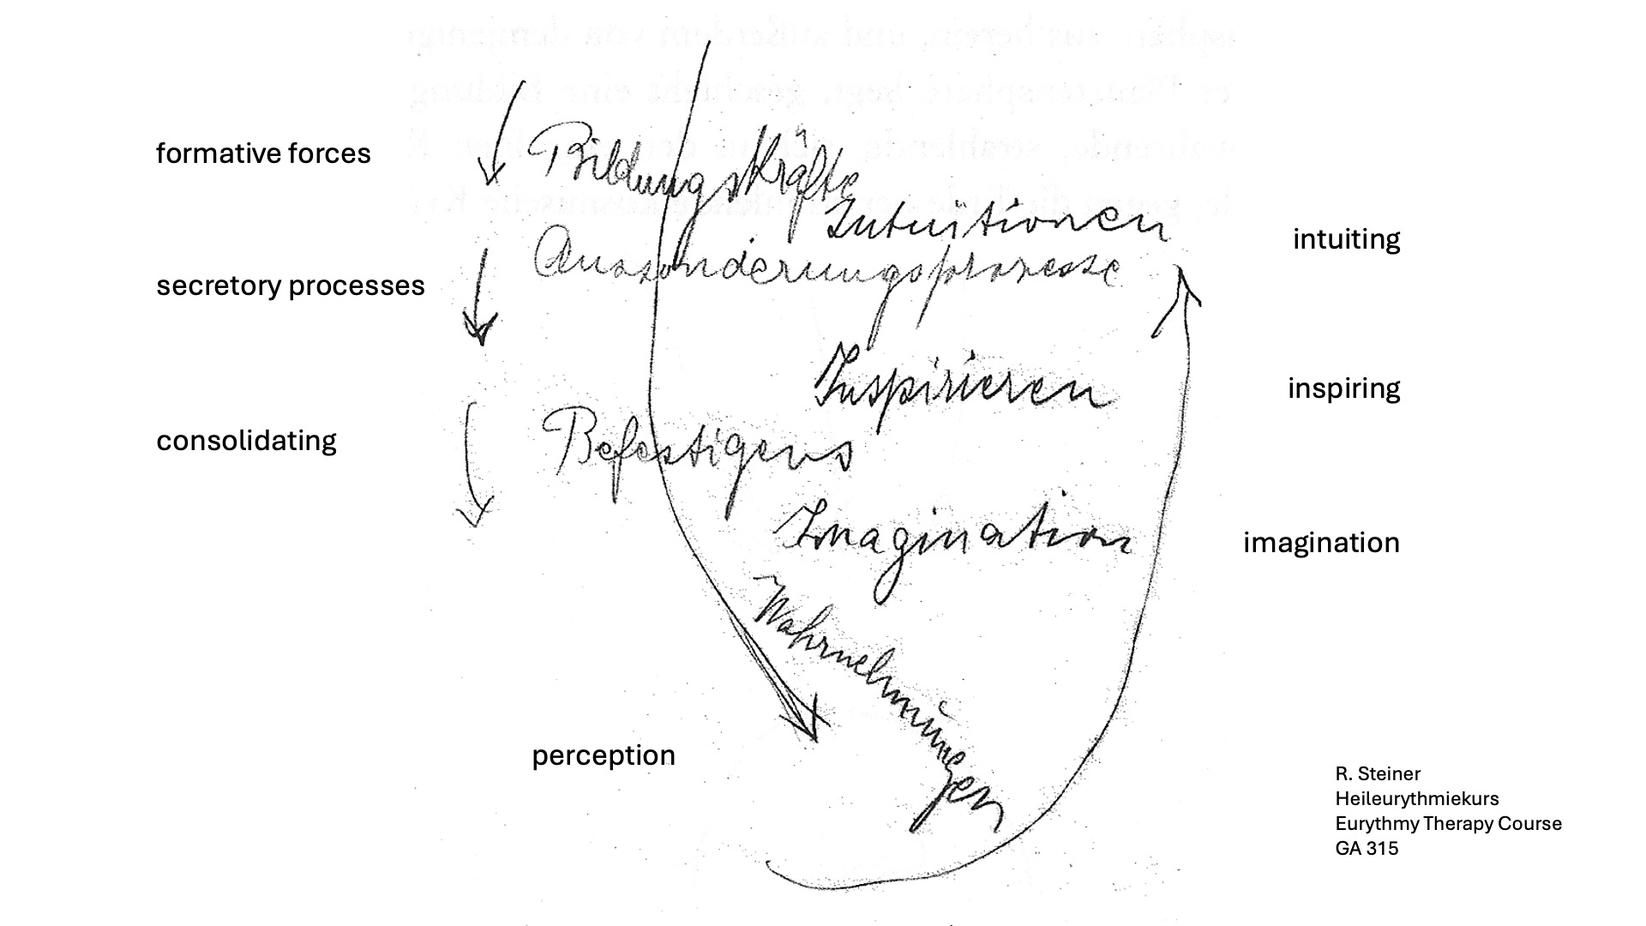 formative forces
Bildungskräfte
Intuitionen
intuiting
Aussonderungsprozesse
secretory processes
Inspirieren
inspiring
consolidating
Befestigens
Imagination
imagination
Wahrnehmungen
perception
R. Steiner
Heileurythmiekurs
Eurythmy Therapy Course
GA 315